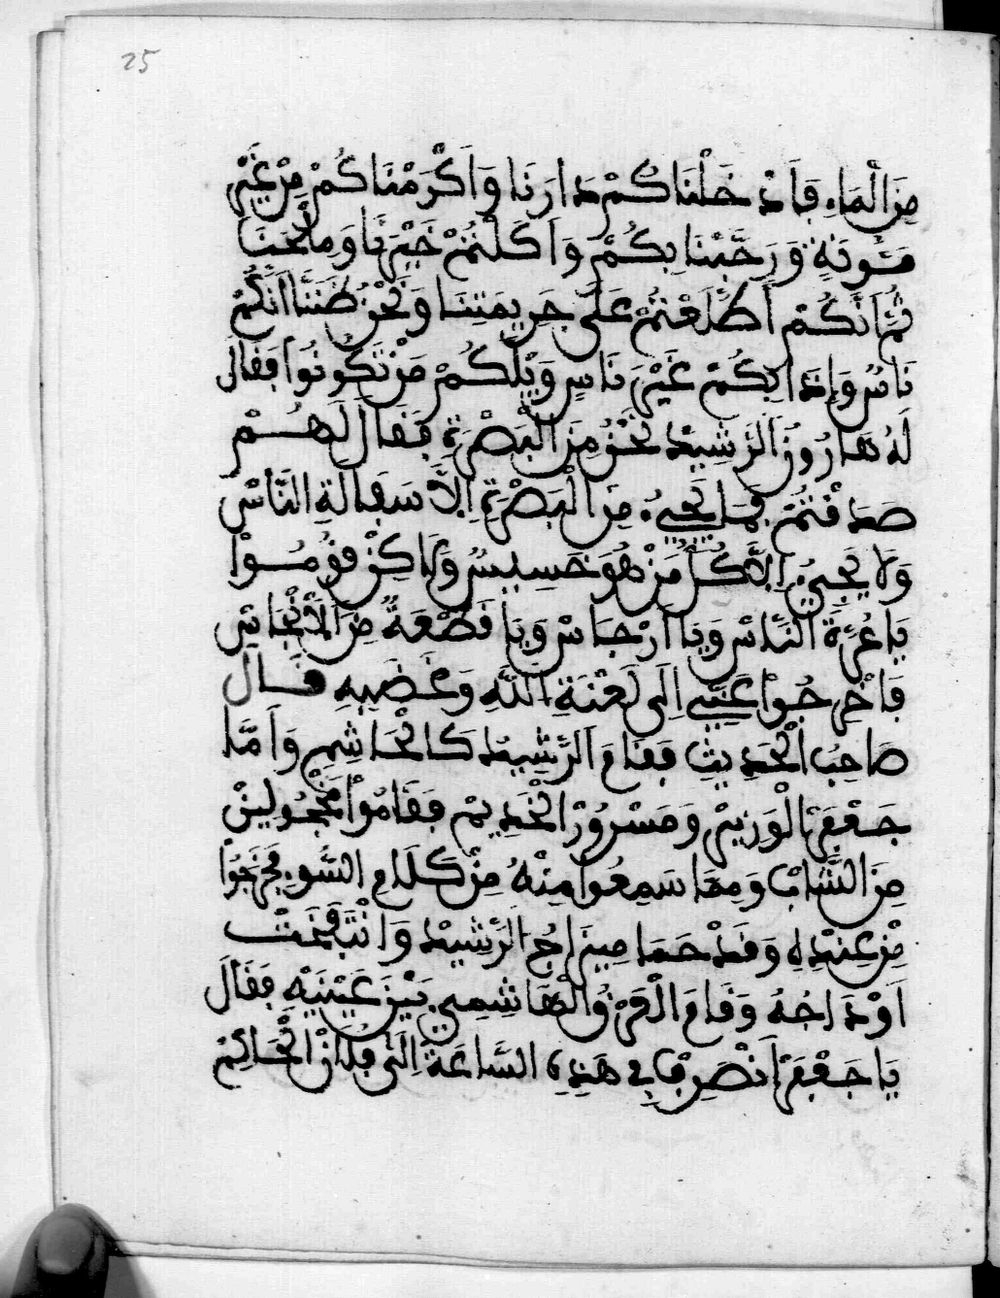 25
مِنَ الْمَاءِ فَأَدْخَلْنَاكُمْ دَارَنَا وَأَكْرَمْنَاكُمْ مِنْ غَيْرِ
مَئُونَةٍ وَرَحَّبْنَا بِكُمْ وَأَكَلْتُمْ خَيْرَنَا وَمِلْحَنَا
ثُمَّ أَنَّكُمْ أَطْلَعْتُمْ عَلَى جَرِيمَتِنَا وَنَحْنُ ظَنَنَّا أَنَّكُمْ
نَاسٌ وَإِذَا بِكُمْ غَيْرَ نَاسٍ وَيْلَكُمْ مَنْ تَكُونُوا فَقَالَ
لَهُ هَارُونَ الرَّشِيدْ نَحْنُ مِنَ الْبَصْرَةِ فَقَالَ لَهُمْ
صَدَقْتُمْ فَمَا يَجِيءُ مِنَ الْبَصْرَةِ إِلاَّ سَفَالَةِ النَّاسْ
وَلاَ يَجِيءُ إِلاَّ كُلُّ مَنْ هُوَ خَسِيسٌ وَلَاكِنْ قُومُوا
يَا عُرَّةَ النَّاسْ وَيَا أَرْجَاسْ وَيَا قَطْعَةً مِنَ الْأَنْجَاسْ
فَاخْرُجُوا عَنِّي إِلَى لَعْنَةِ اللَّهِ وَغَضَبِهِ قَالَ
صَاحِبُ الْحَدِيثِ فَقَامَ الرَّشِيدْ كَالْحَاشِمِ وَأَمَّا
جَعْفَرْ الْوَزِيرْ وَمَسْرُورْ الْخَدِيمْ فَقَامُوا مَخْجُولِينْ
مِنَ الشَّابْ وَمِمَّا سَمِعُوا مِنْهُ مِنْ كَلَامِ السُّوءِ فَخَرَجُوا
مِنْ عِنْدِهِ وَقَدْ حَمَا مِيزَاجُ الرَّشِيدْ وَانْتَفَخَتْ
أَوْدَاجُهُ وَقَامَ الْعَرْقُ الْهَاشِمِي بَيْنَ عَيْنَيْهِ فَقَالَ
يَا جَعْفَرْ أَنْصَرِفْ فِي هَذِهِ السَّاعَةْ إِلَى فُلَانْ الْحَاكِمْ